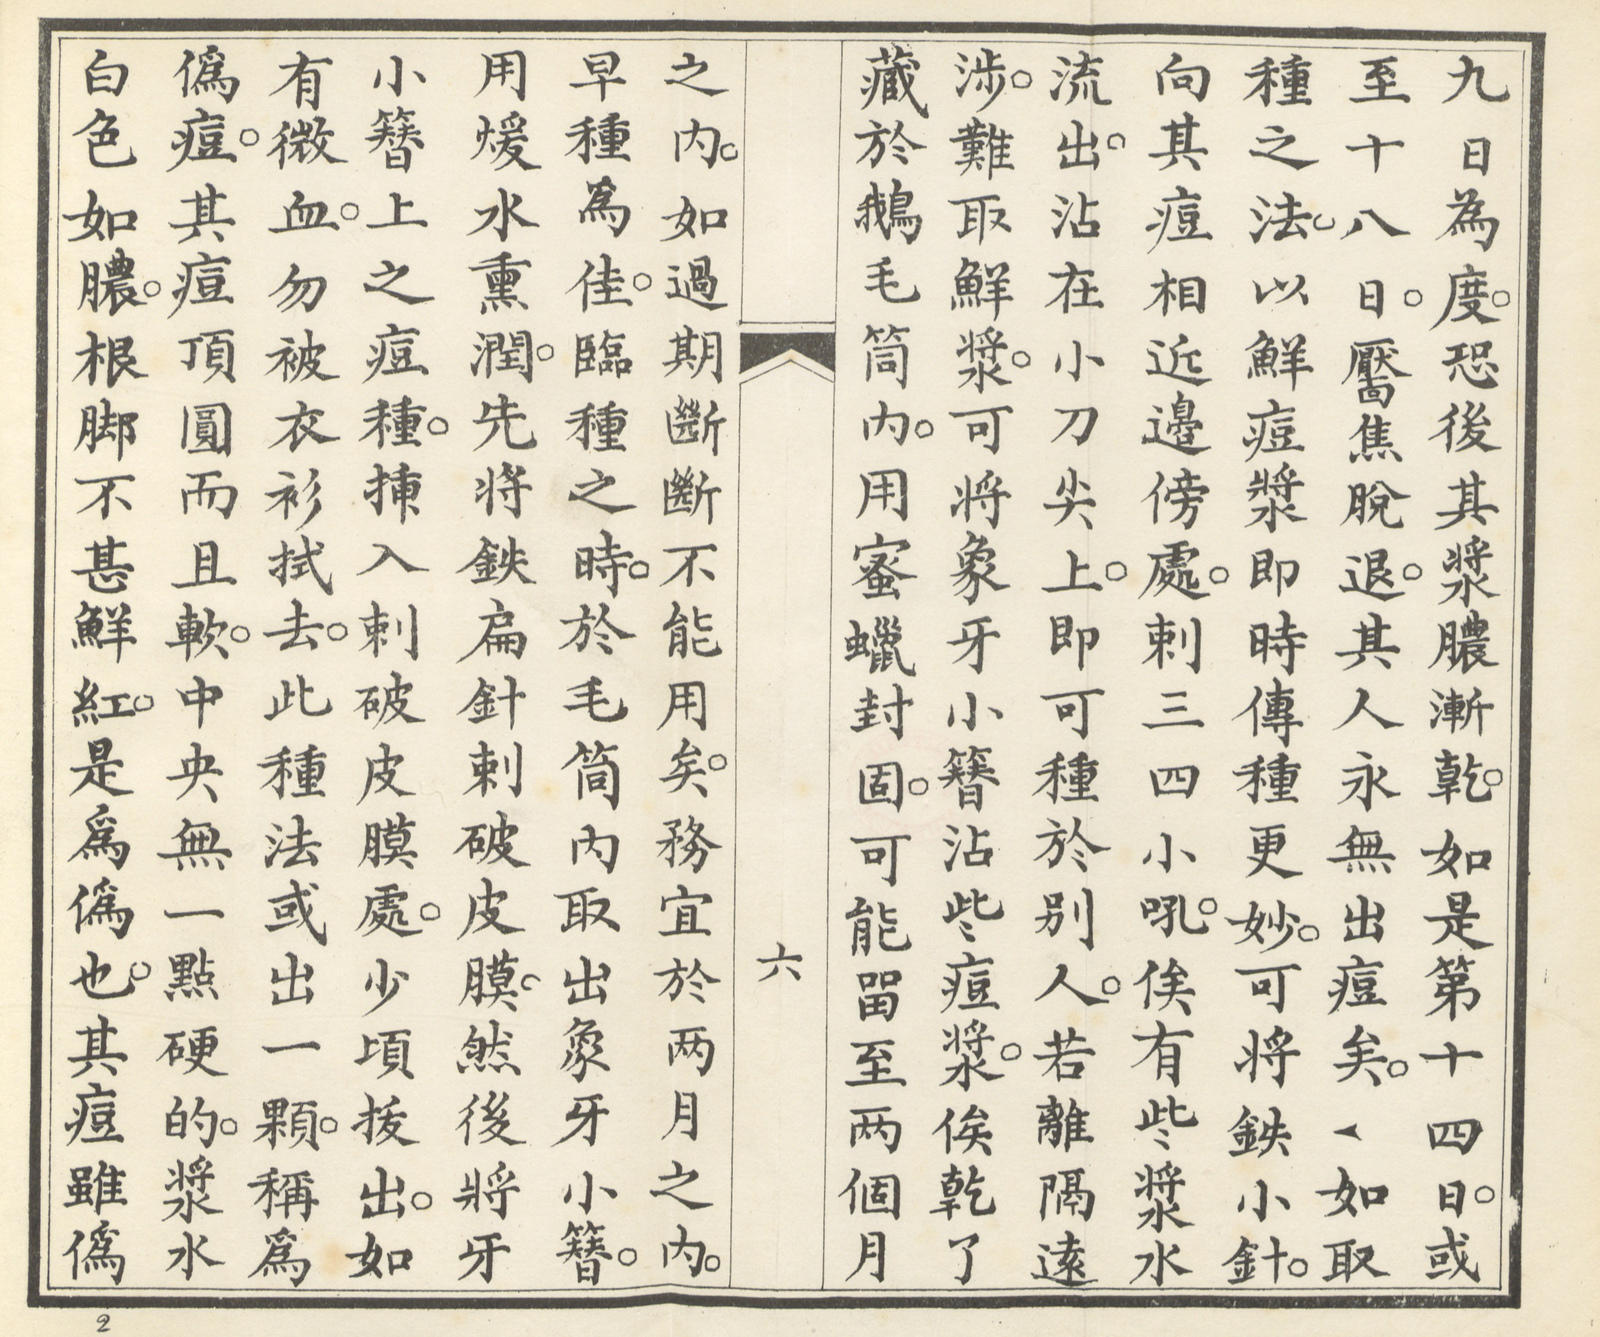 九日為度。恐後其漿膿漸乾。如是第十四日。或
至十八日。靨焦脫退。其人永無出痘矣。、如取
種之法。以鮮痘漿即時傳種更妙。可將鉄小針。
向其痘相近邊傍處。刺三四小吼。俟有些漿水
流出。沾在小刀尖上。即可種於別人。若離隔遠
涉。難取鮮漿。可將象牙小簪沾些痘漿。俟乾了
藏於鵝毛筒內。用蜜蠟封固。可能畱至两個月
六
之內。如過期斷斷不能用矣。務宜於两月之內。
早種為佳。臨種之時。於毛筒內取出象牙小簪。
用煖水熏潤。先將鉄扁針刺破皮膜。然後將牙
小簪上之痘種。揷入刺破皮膜處。少頃拔出。如
有微血。勿被衣衫拭去。此種法或出一顆。稱為
偽痘。其痘頂圓而且軟。中央無一點硬的。漿水
白色如膿。根脚不甚鮮紅。是為偽也。其痘雖偽
2